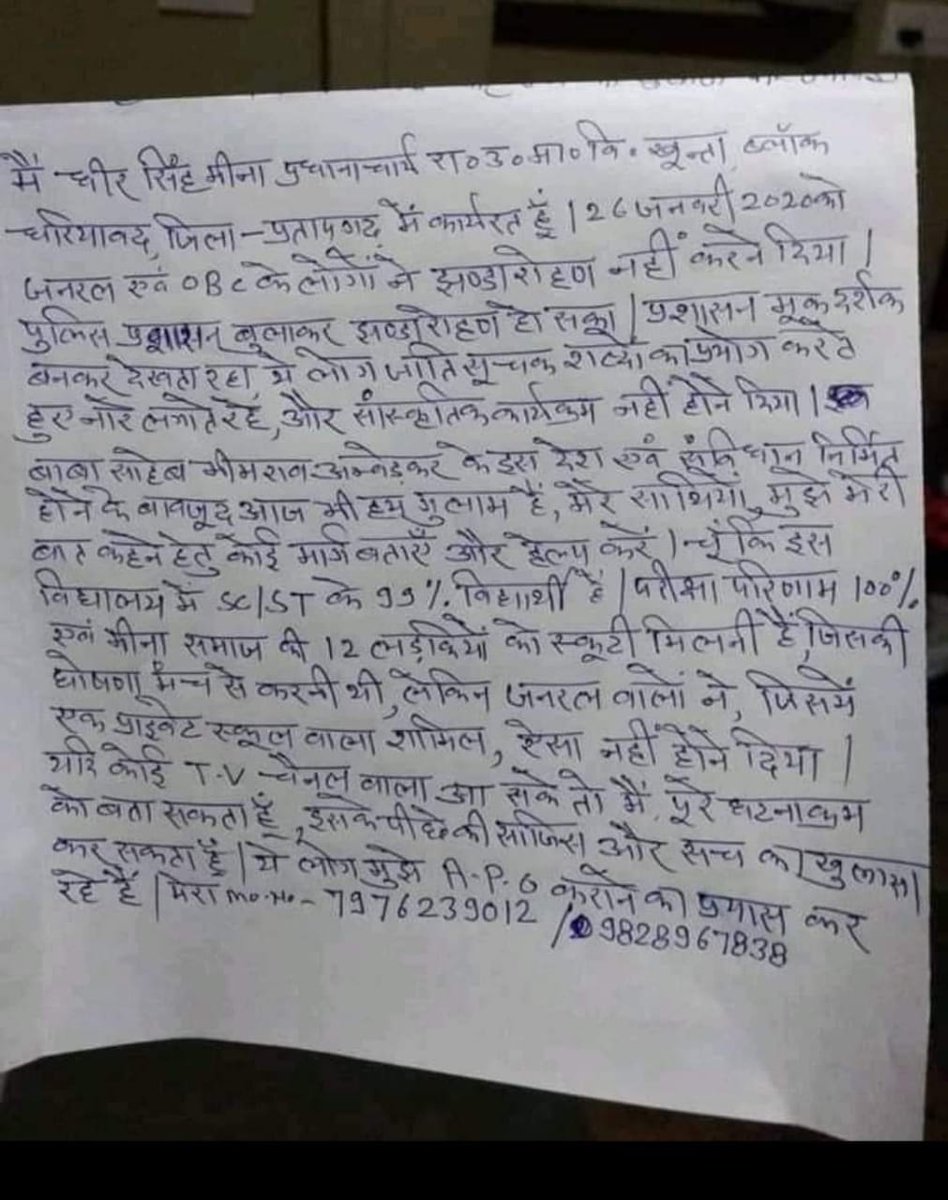 मैं धीर सिंह मीना प्रधानाचार्य रा०उ०मा०वि० खून्ता, ब्लॉक
धरियावद, जिला-प्रतापगढ़ में कार्यरत हूँ | 26 जनवरी 2020 को
जनरल एवं OBC के लोगों ने झण्डारोहण नहीं करने दिया |
पुलिस प्रशासन बुलाकर झण्डारोहण हो सका | प्रशासन मूकदर्शक
बनकर देखता रहा, ये लोग जाति सूचक शब्दों का प्रयोग करते
हुए नारे लगाते रहे, और सांस्कृतिक कार्यक्रम नहीं होने दिया |
बाबा साहेब भीमराव अम्बेडकर के इस देश एवं संविधान निर्मित
होने के बावजूद आज भी हम गुलाम हैं, मेरे साथियों, मुझे मेरी
बात कहने हेतु कोई मार्ग बताएँ और हेल्प करें | चूँकि इस
विद्यालय में SC/ST के 99%. विद्यार्थी हैं | परीक्षा परिणाम 100%.
एवं मीना समाज की 12 लड़कियों को स्कूटी मिलनी हैं, जिसकी
घोषणा मंच से करनी थी, लेकिन जनरल वालों ने, जिसमें
एक प्राइवेट स्कूल वाला शामिल, ऐसा नहीं होने दिया |
यदि कोई T.V चैनल वाला आ सके तो मैं, पूरे घटनाक्रम
को बता सकता हूँ, इसके पीछे की साजिस और सच का खुलासा
कर सकता हूँ | ये लोग मुझे A.P.O कराने का प्रयास कर
रहे हैं | मेरा mo.No- 7976239012 / 9828967838